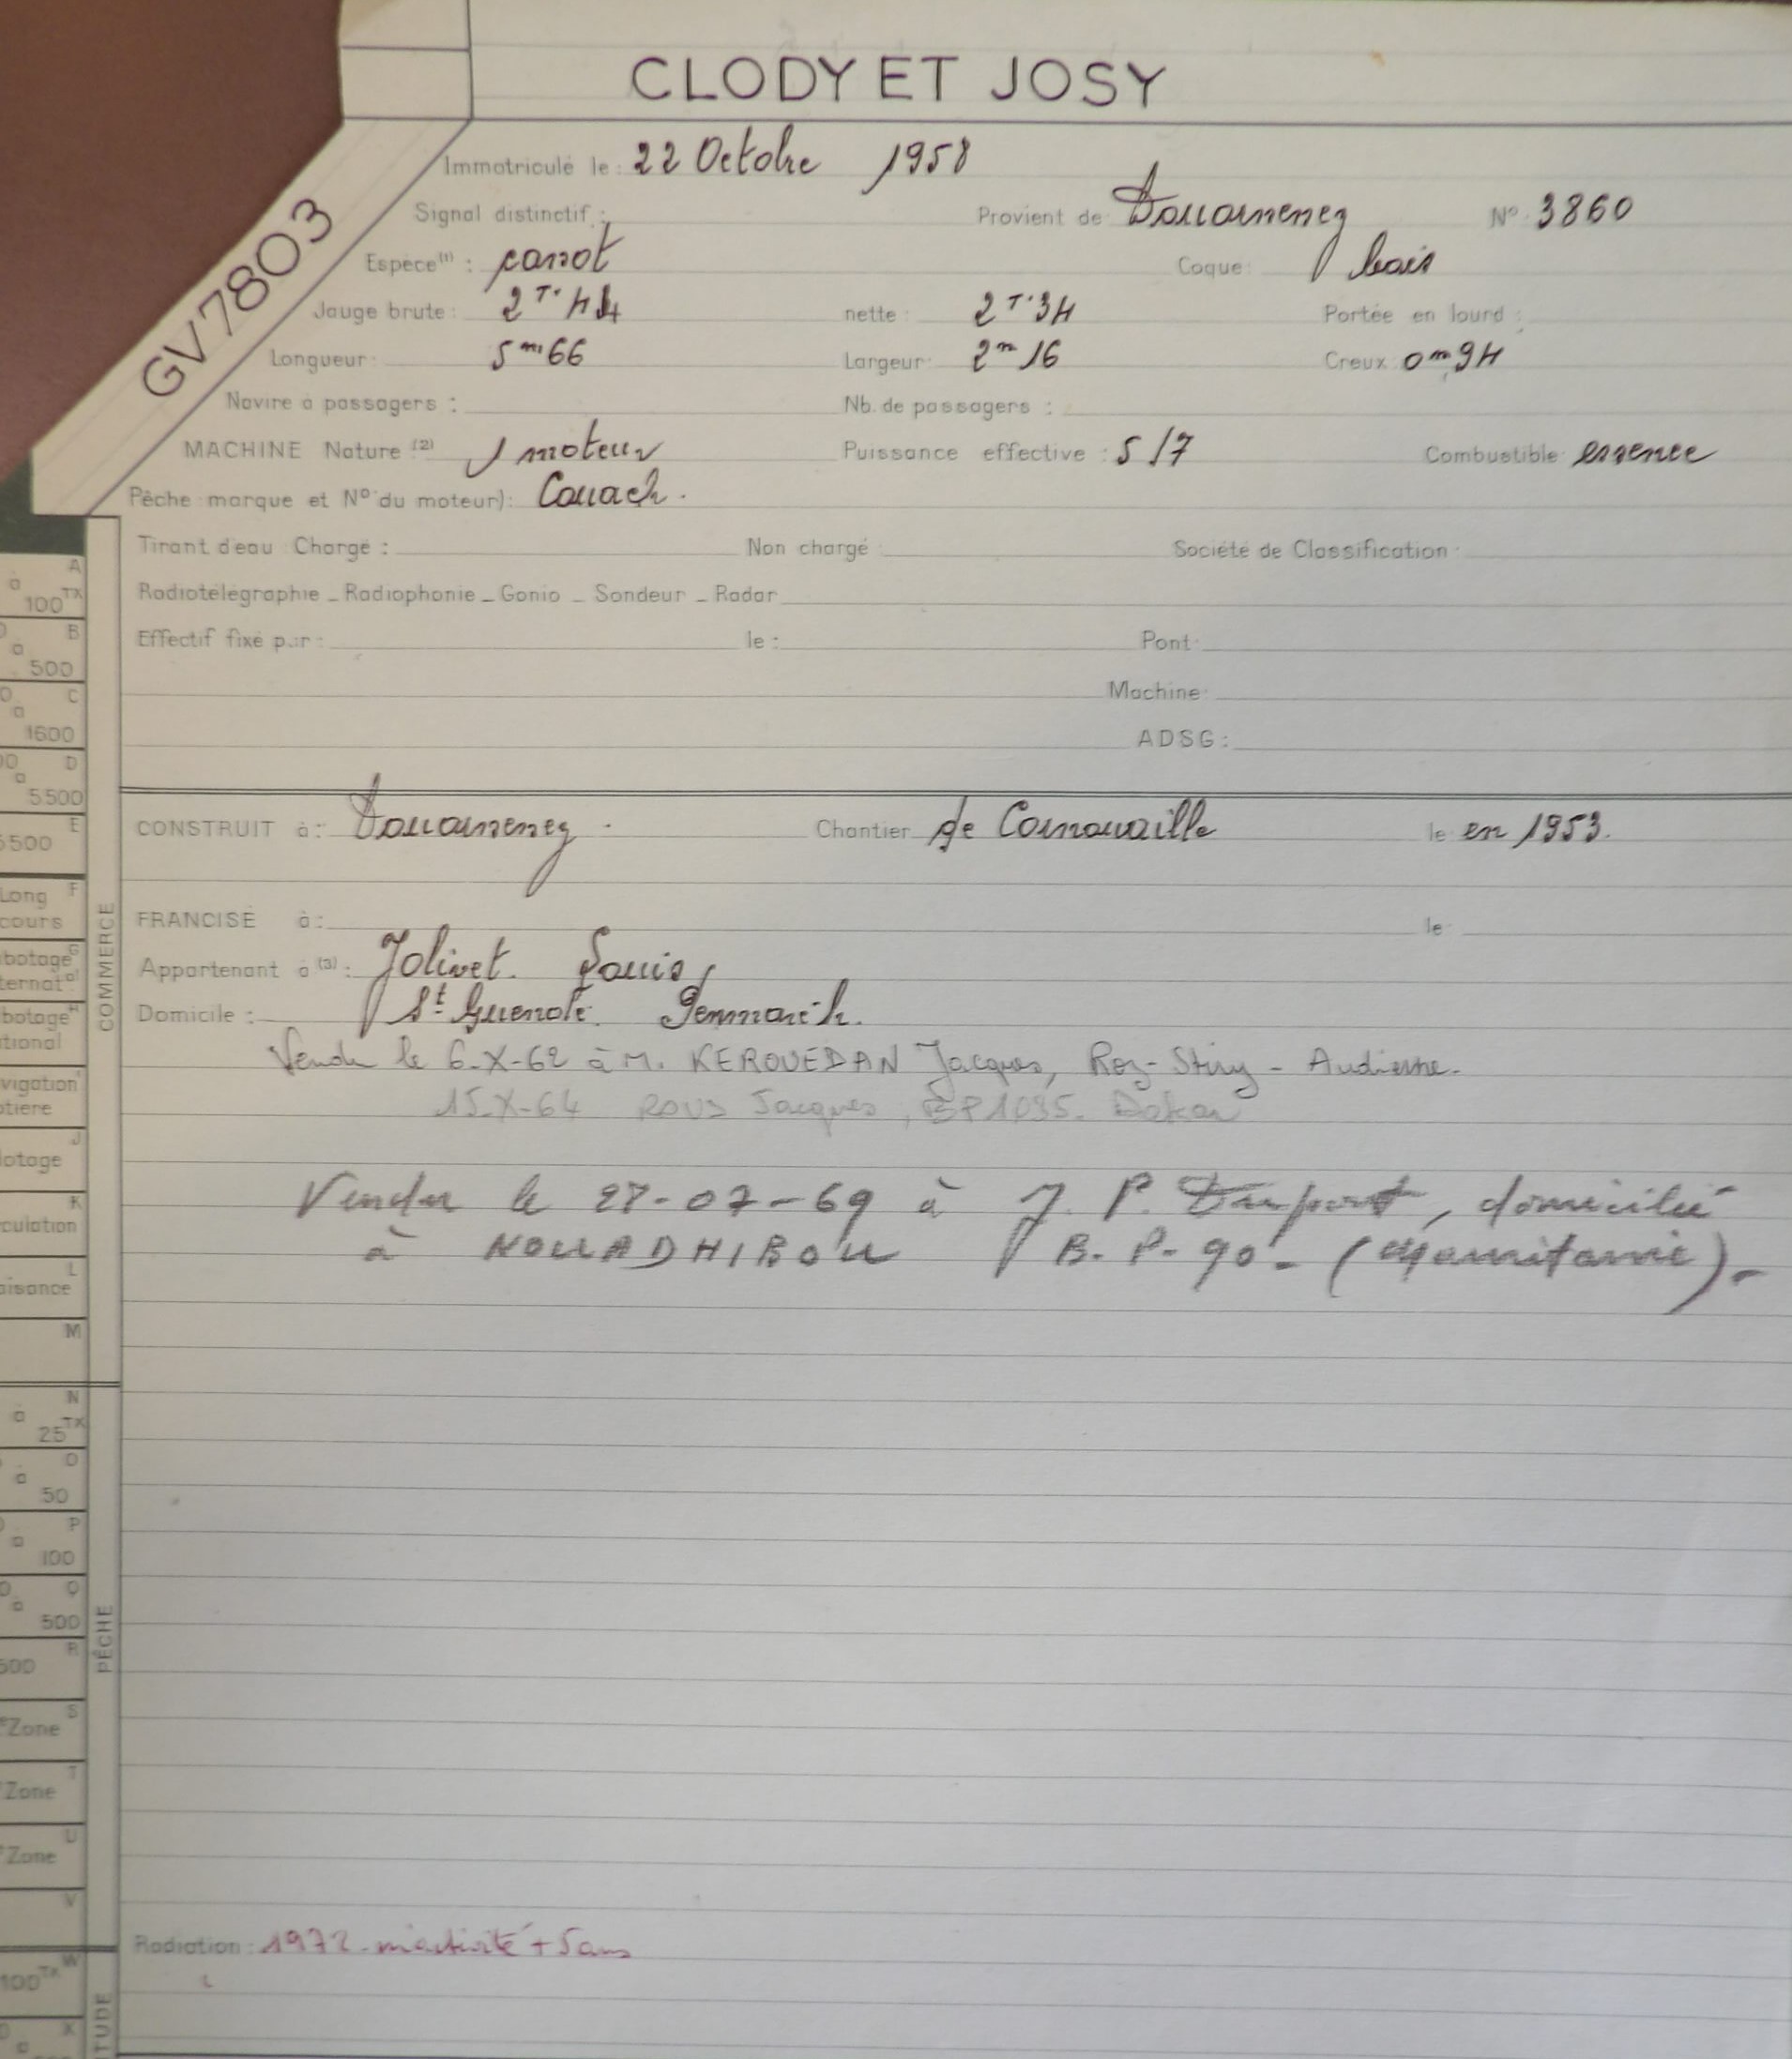 CLODY ET JOSY
GV7803
Immatriculé le : 22 Octobre 1958
Signal distinctif : Provient de Douarnenez N° 3860
Espèce (1) : canot Coque : bois
Jauge brute : 2 Tx 44 nette : 2 Tx 34 Portée en lourd :
Longueur : 5 m 66 Largeur : 2 m 16 Creux 0 m 94
Navire à passagers : Nb. de passagers :
MACHINE Nature (2) 1 moteur Puissance effective : 5/7 Combustible essence
Pêche : marque et N° du moteur) : Couach.
Tirant d'eau Chargé : Non chargé Société de Classification :
Radiotélégraphie _ Radiophonie _ Gonio _ Sondeur _ Radar
Effectif fixé par : le : Pont :
Machine :
ADSG :
CONSTRUIT à : Douarnenez. Chantier de Cornouaille le en 1953.
FRANCISÉ à : le
Appartenant à (3) : Jolivet. Louis,
Domicile : St Guénolé. Penmarch.
Vendu le 6-X-62 à M. KEROUÉDAN Jacques, Roz-Stivy - Audierne.
15-X-64 ROUS Jacques, BP 1035. Dakar
Vendu le 27-07-69 à J. P. Dufort, domicilié
à NOUADHIBOU B. P. 90 - (Mauritanie). -
Radiation : 1972 - inactivité + 5 ans
A
100 TX
B
500
C
1600
D
5500
E
5500
F
Long
cours
G
H
J
K
L
M
COMMERCE
N
25 TX
O
50
P
100
Q
500
R
S
Zone
T
Zone
U
Zone
V
PÊCHE
W
100 TX
X